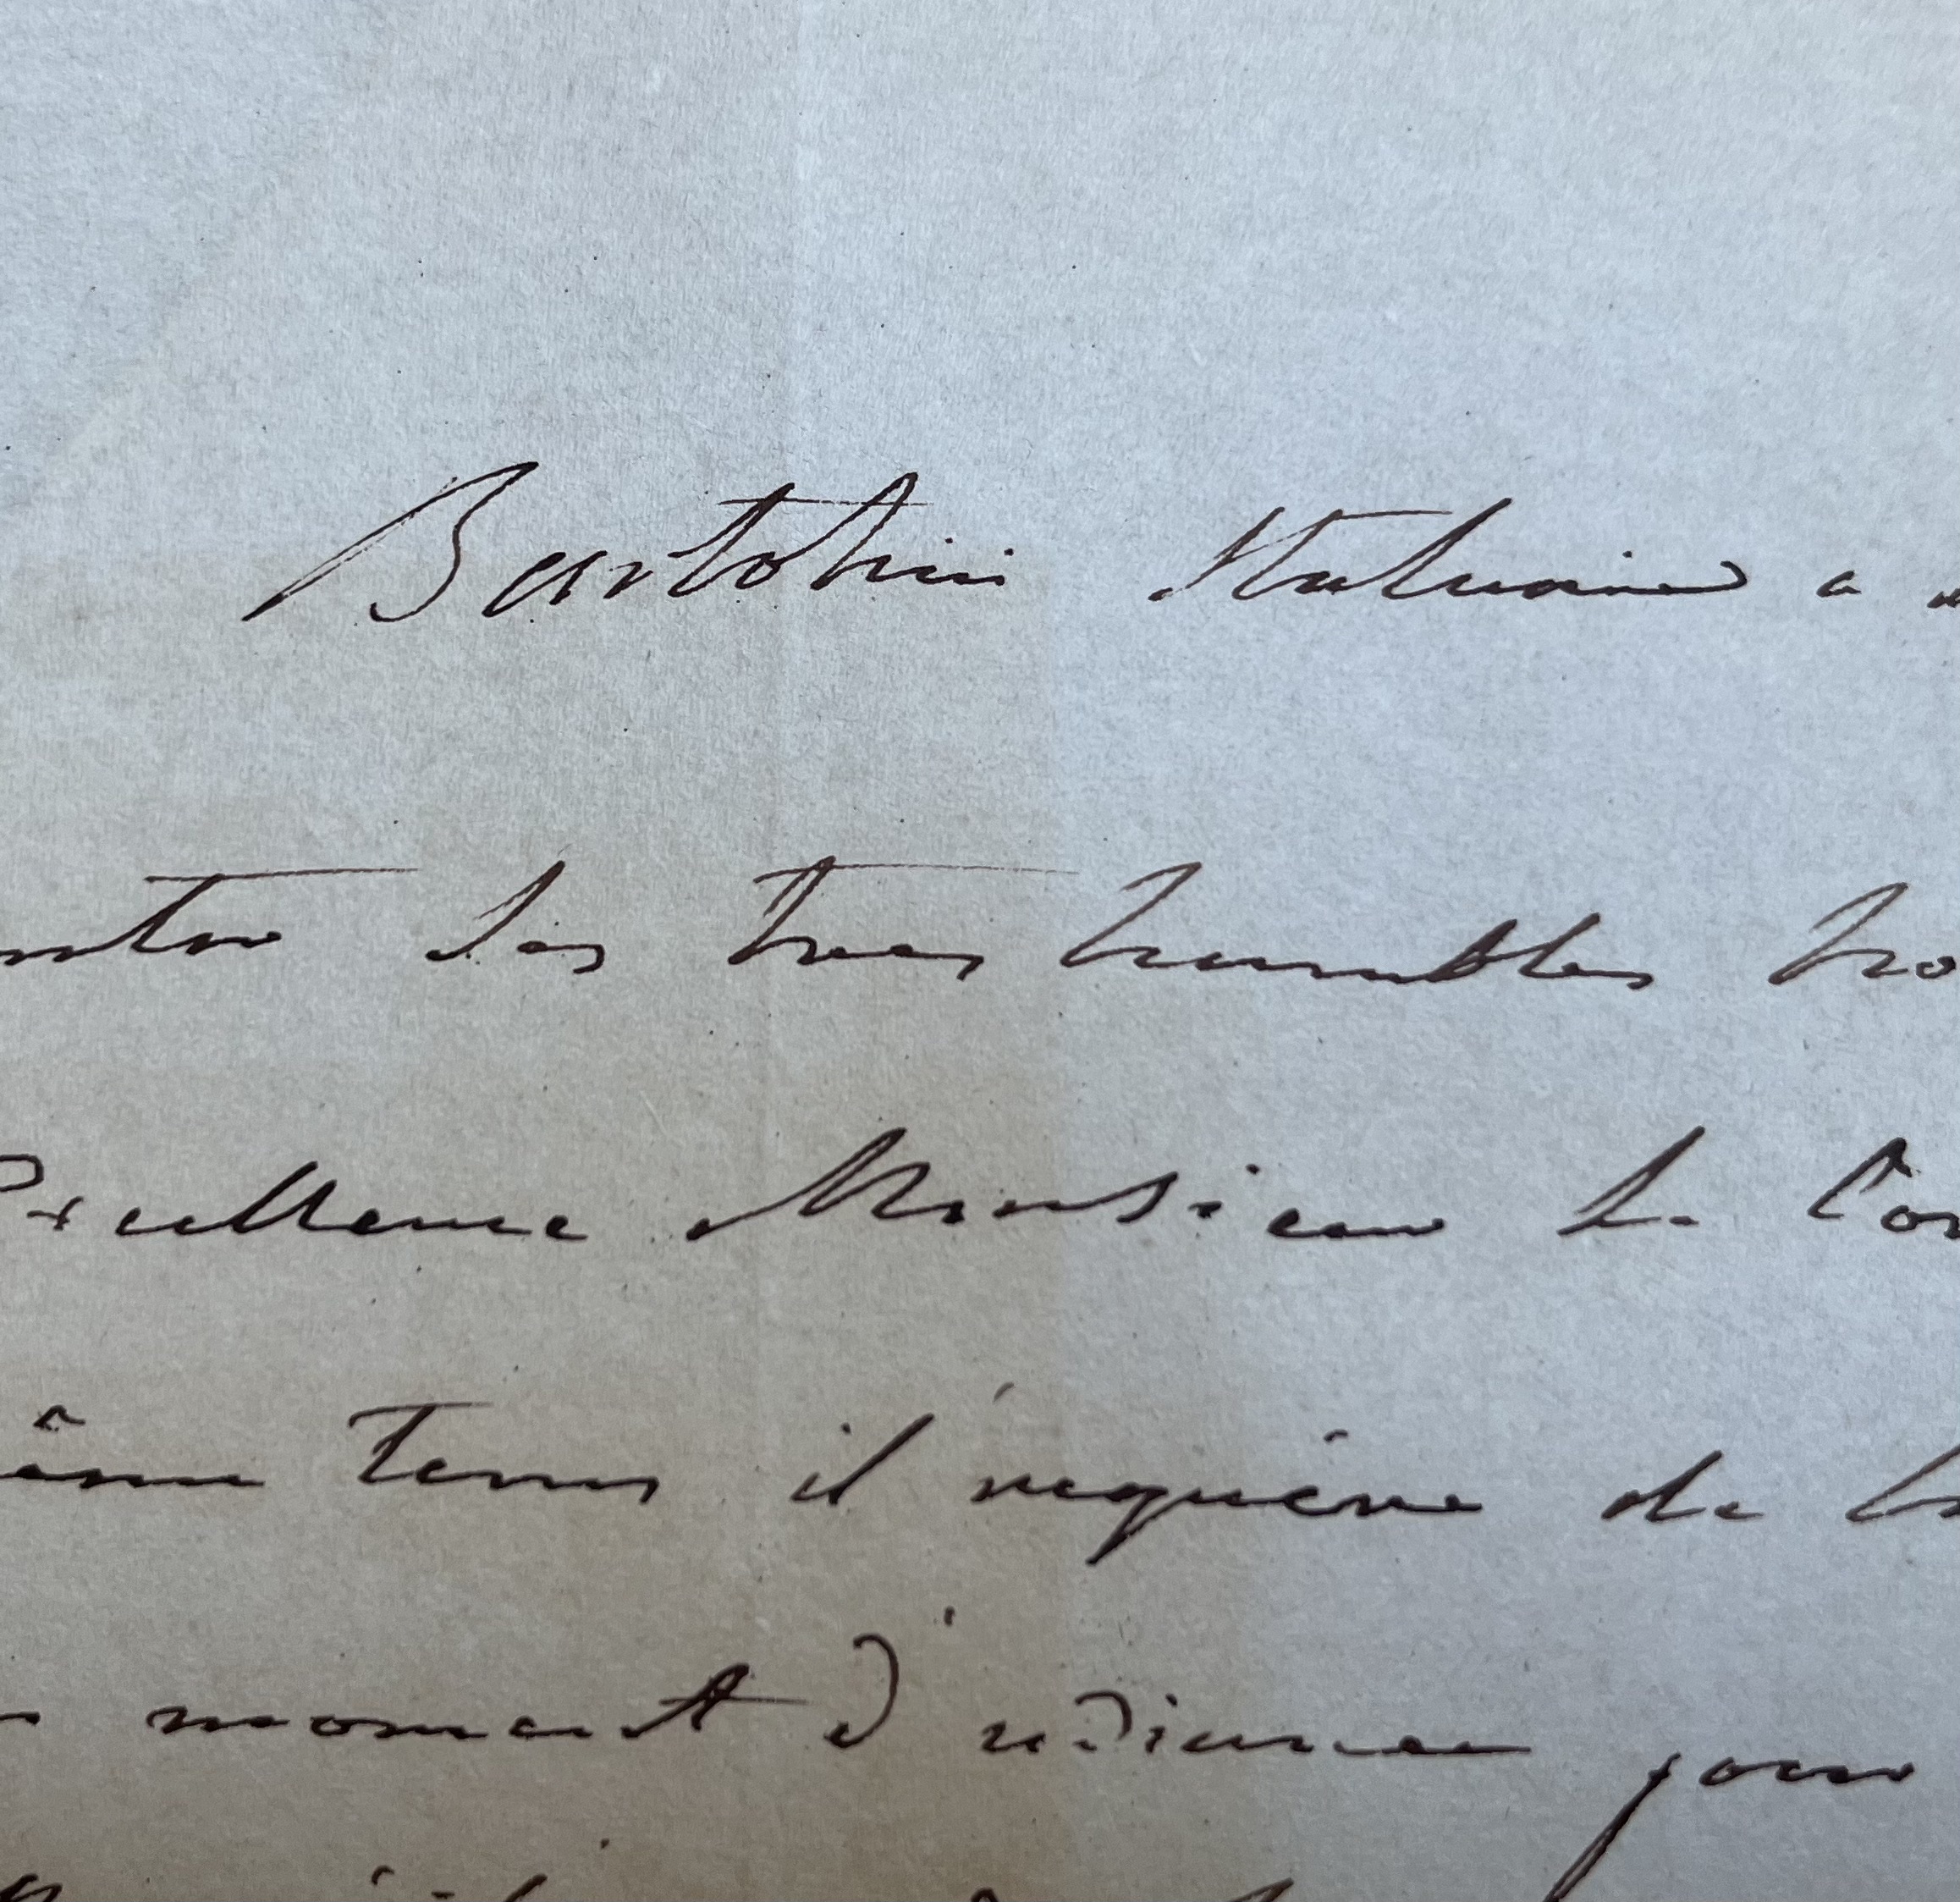 Bartolini Statuaire a
les tres humbles ho
Excellence Monsieur le Con
même Tems il requère de l
moment d'udiance pour